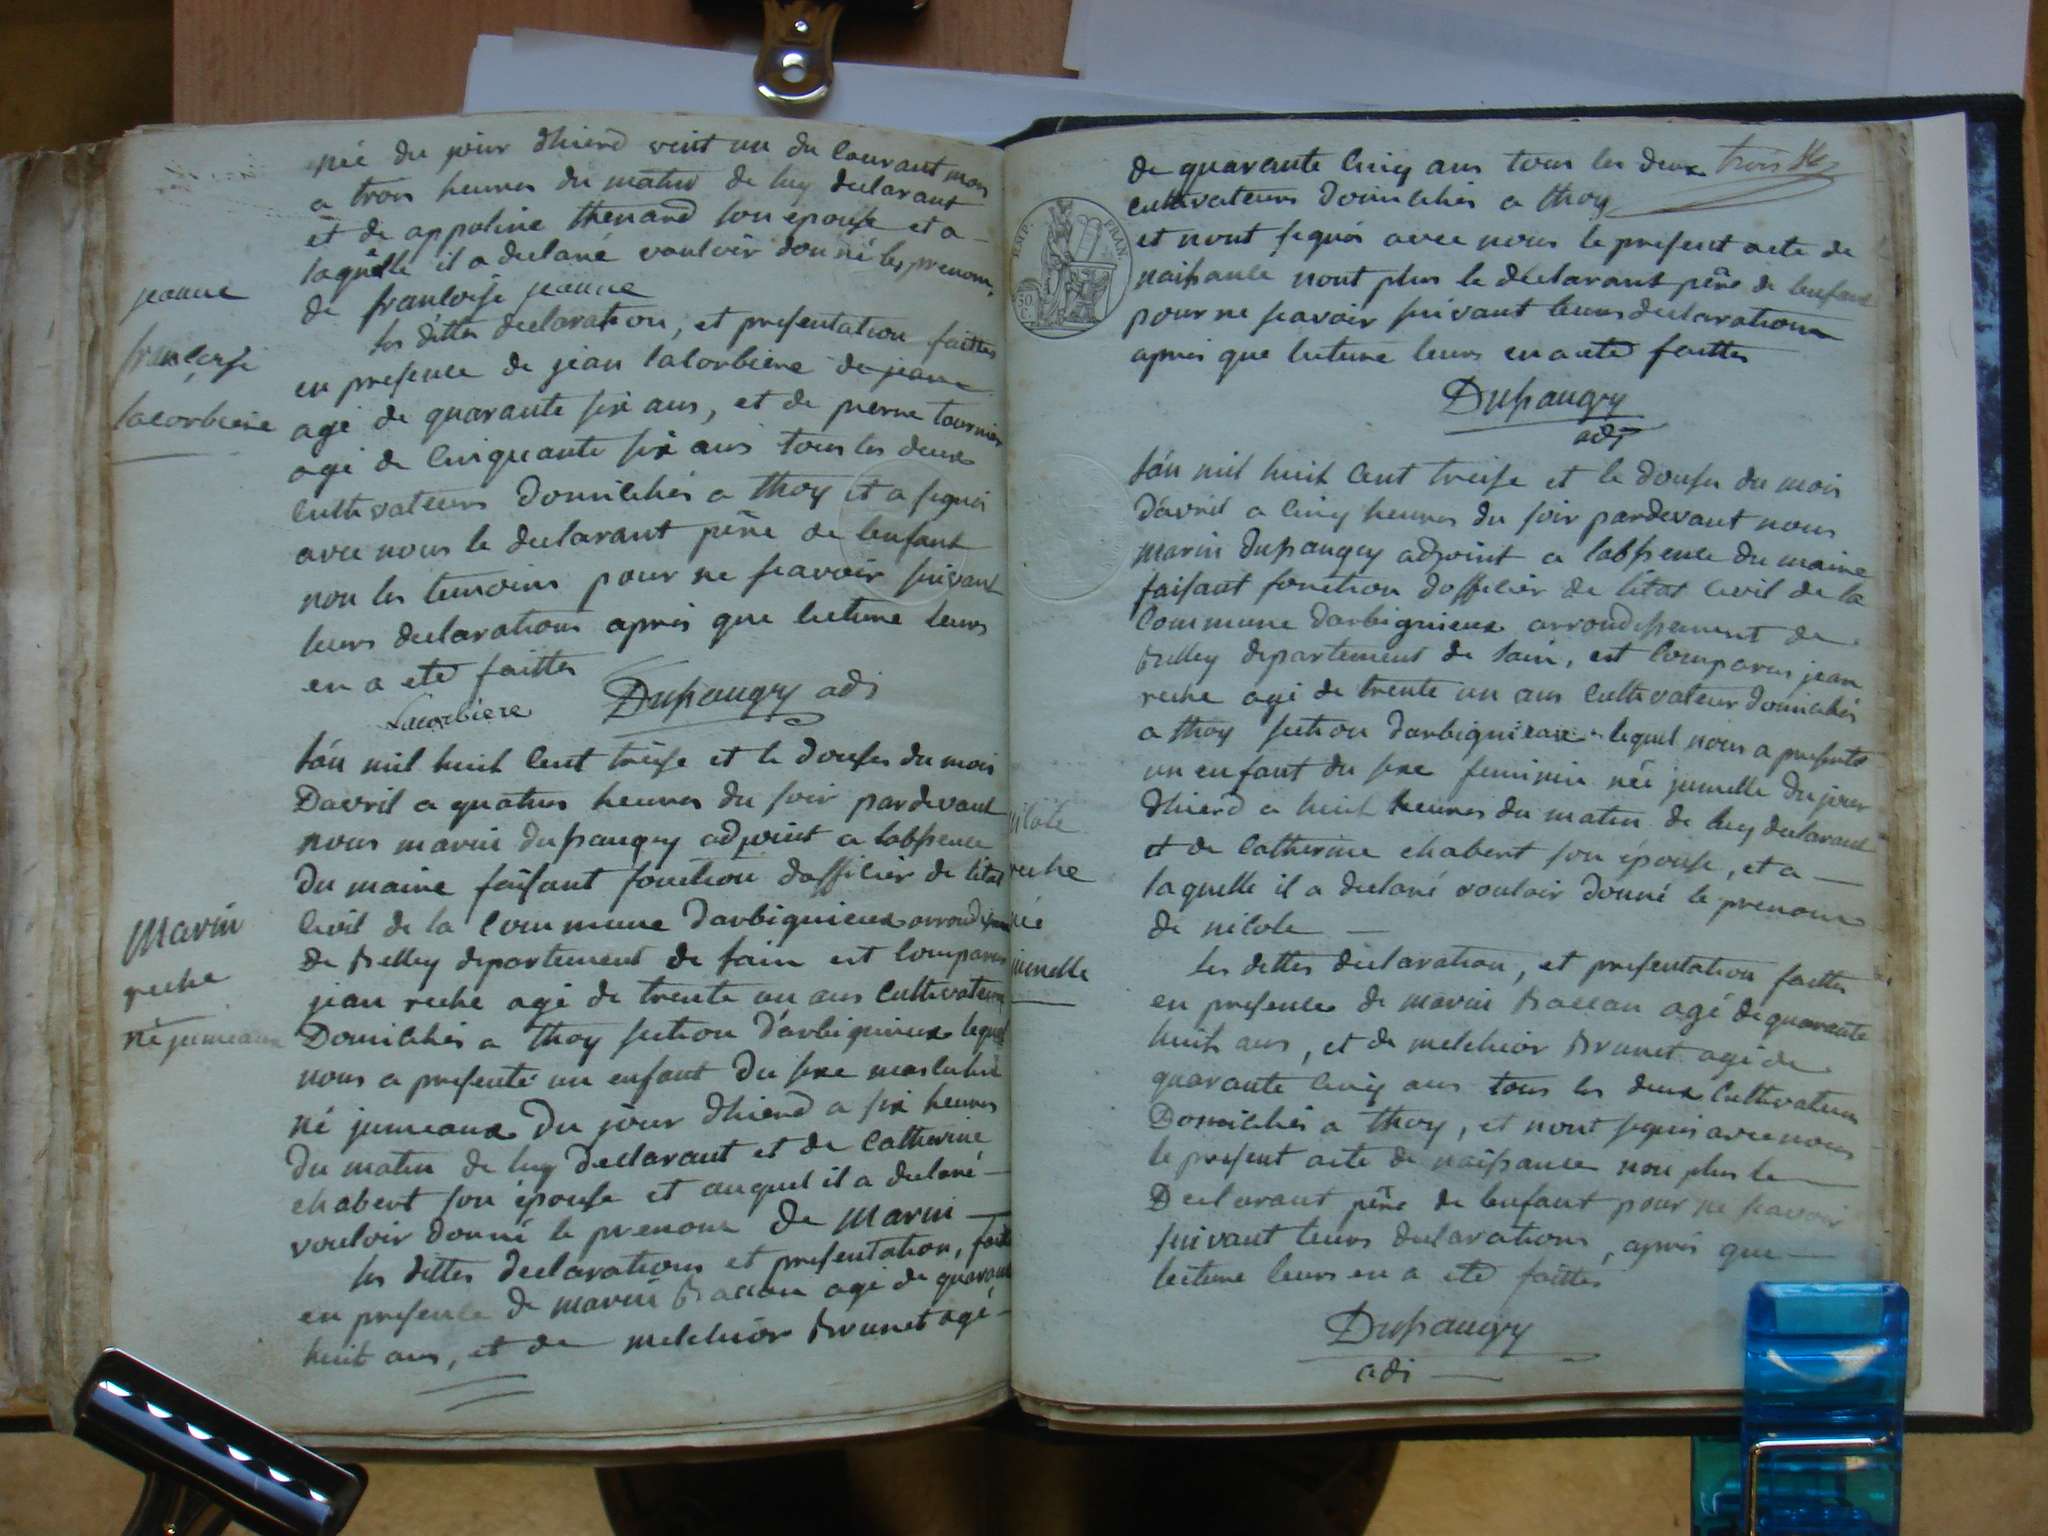 née du jour dhierd vint un du Courant mois
a trois heures du matin de luy declarant
et de appoline thenard son epouse et a
laquelle il a declaré vouloir donné les prenom
de francoise jeanne
jeanne
francoise
lacorbiere
les dittes declaration, et presentation faittes
en presence de jean lacorbiere de jeanne
agé de quarante six ans, et de pierre tournier
agé de Cinquante six ans tous les deux
Cultivateurs domiciliés a thoy et a signé
avec nous le declarant père de lenfant
non les temoins pour ne scavoir suivant
leurs declarations après que lecture leurs
en a eté faittes
Lacorbiere Dupraugey adj
lán mil huit Cent treise et le douse du mois
Davril a quatres heures du soir pardevant
nous marin dupraugey adjoint a labsence
du maire faisant fonction dofficier de létat
Civil de la Commune darbignieux arrondissement
de Belley departement de lain est Comparus
jean reche agé de trente un ans Cultivateur
Domiciliés a thoy section d'arbignieux lequel
nous a presenté un enfant du sexe masculin
né jumeaux du jour dhierd a six heures
du matin de luy declarant et de Catherine
chabert son épouse et auquel il a declaré
vouloir donné le prenom de marin
Marin
reche
né jumeaux
les dittes declarations et presentation, faitte
en presence de marin Baccon agé de quarante
huit ans, et de melchior Brunet agé
de quarante Cinq ans tous les deux trois
Cultivateurs domiciliés a thoy
et nont signés avec nous le present acte de
naissance nont plus le declarant père de lenfant
pour ne scavoir suivant leurs declarations
après que lecture leurs en a eté faittes
EMP. FRAN.
50 C.
Dupraugey
adj
lán mil huit Cent treise et le douse du mois
d'avril a Cinq heures du soir pardevant nous
marin dupraugey adjoint a labsence du maire
faisant fonction dofficier de létat Civil de la
Commune darbignieux arrondissement de
Belley departement de lain, est Comparus jean
reche agé de trente un ans Cultivateur domiciliés
a thoy section darbignieux lequel nous a presenté
un enfant du sexe feminin née jumelle du jour
dhierd a huit heures du matin de luy declarant
et de Catherine chabert son épouse, et a
laquelle il a declaré vouloir donné le prenom
de nicole
nicole
reche
née
jumelle
les dittes declaration, et presentation faittes
en presence de marin Baccon agé de quarante
huit ans, et de melchior Brunet agé de
quarante Cinq ans tous les deux Cultivateurs
Domiciliés a thoy, et nont signés avec nous
le present acte de naissance non plus le
Declarant père de lenfant pour ne scavoir
suivant leurs declarations, après que
lecture leurs en a eté faittes
Dupraugey
adj